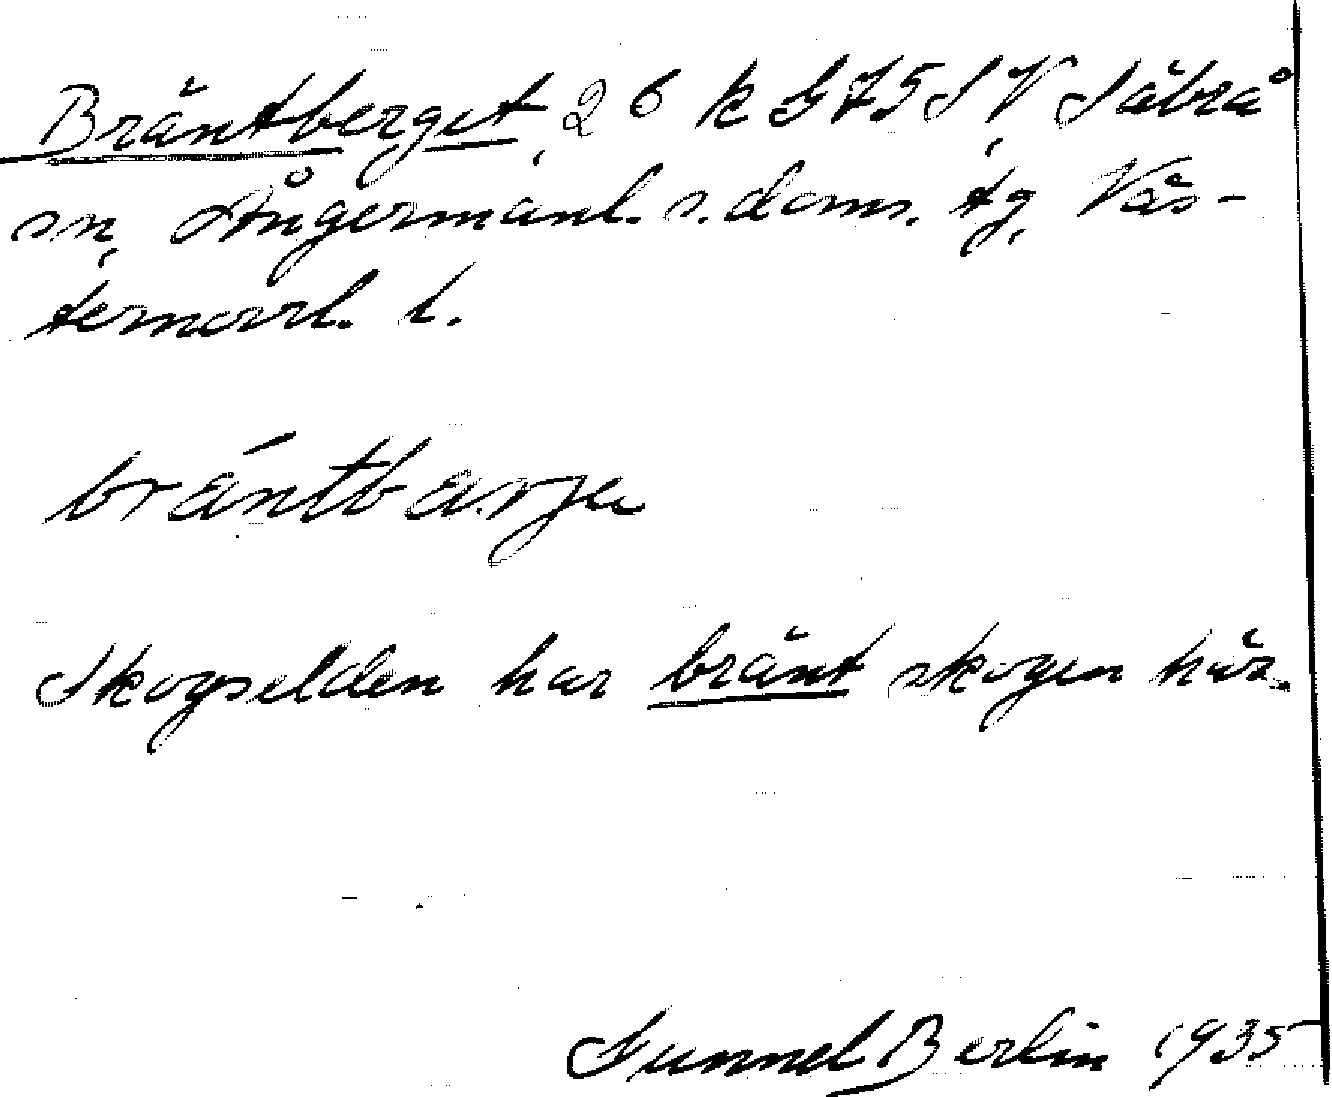 Bräntberget, 26 k G 75 SV Säbrå
sn, Ångermanl. s. doms. tg, Väs-
ternorrl. l.
brántbarje
Skogselden har bränt skogen här.
Gunnel Berlin 1935